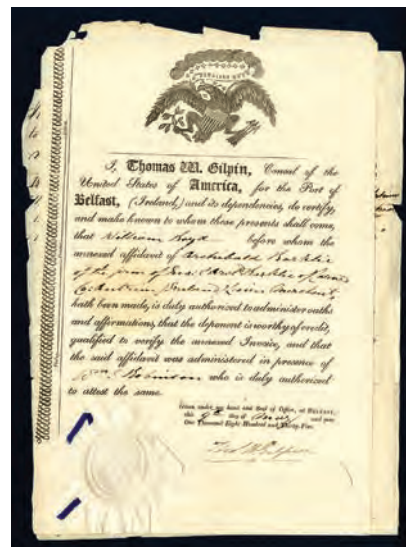 I, Thomas W. Gilpin, Consul of the
United States of America, for the Port of
Belfast, (Ireland,) and its dependencies, do certify,
and make known to whom these presents shall come,
that William Boyd before whom the
annexed affidavit of Archibald Barklie
of the firm of
Merchant,
hath been made, is duly authorized to administer oaths
and affirmations, that the deponent is worthy of credit,
qualified to verify the annexed Invoice, and that
the said affidavit was administered in presence of
Wm. Robinson who is duly authorized
to attest the same.
Given under my hand and Seal of Office, at BELFAST,
this 9th day of May and year
One Thousand Eight Hundred and Thirty-Five
Thos W Gilpin